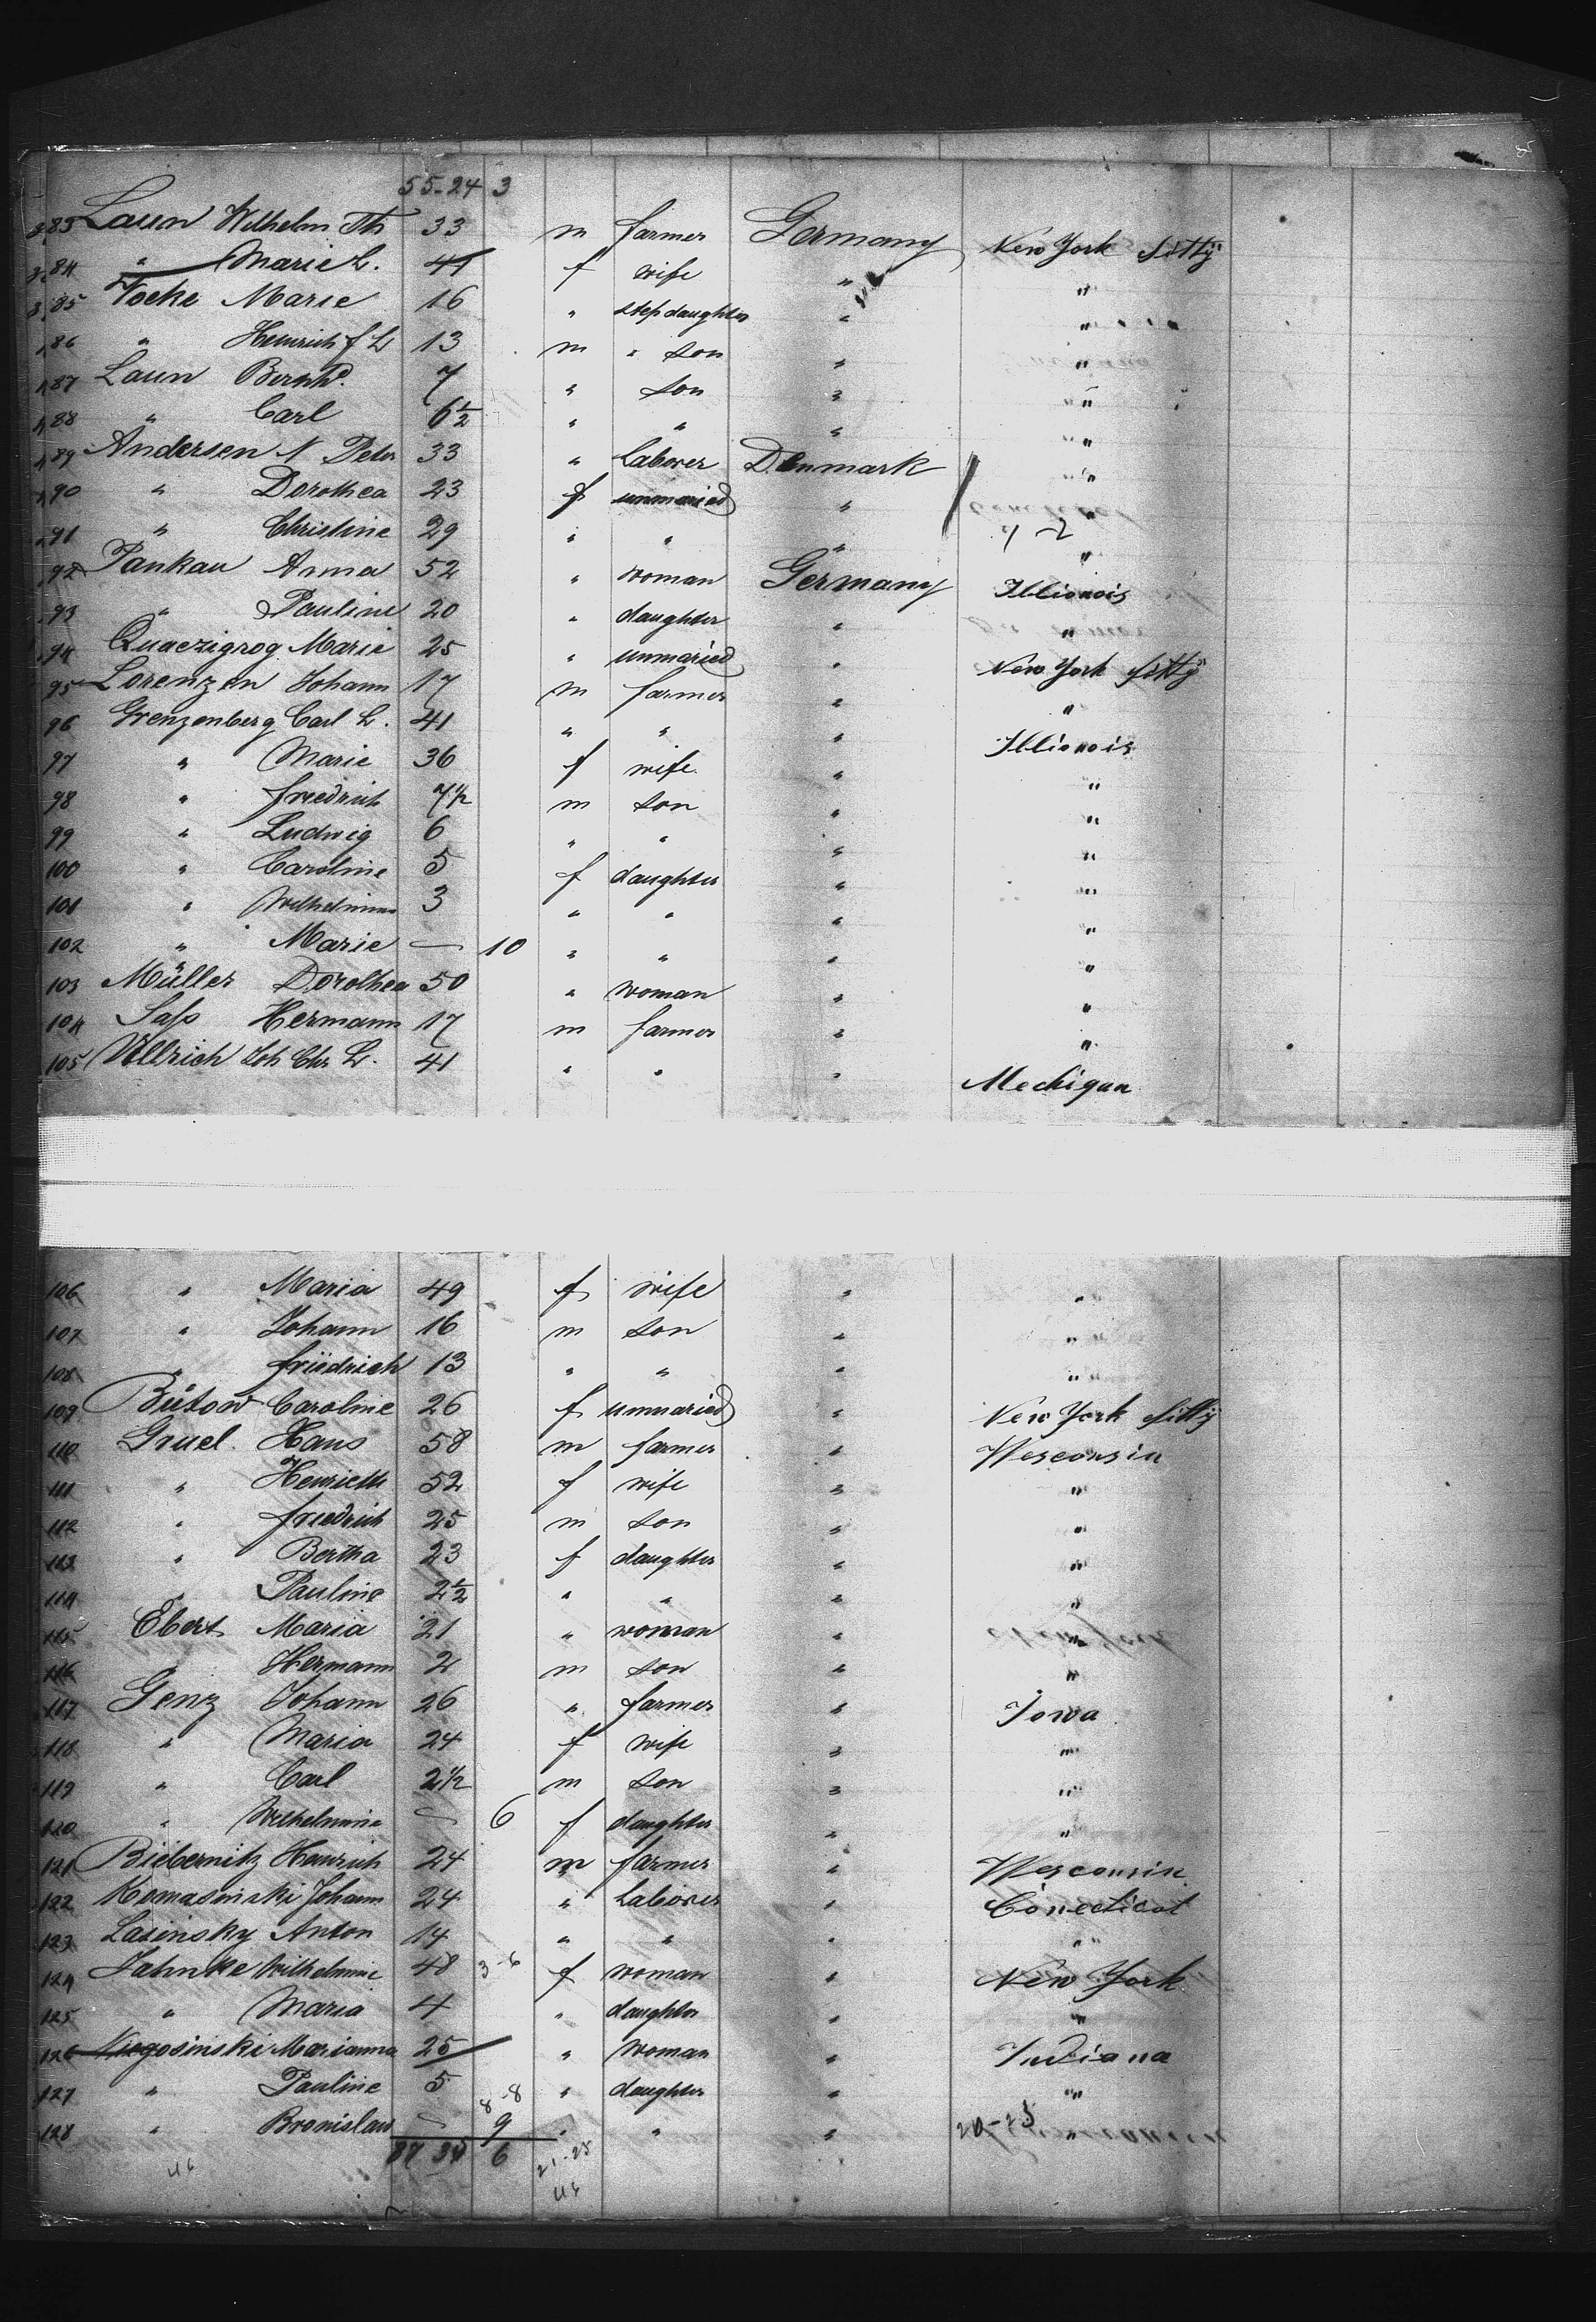 55-24 3
83 Laun Wilhelm Th 33 m farmer Germany New York Sitty
84 " Marie L. 41 f wife " "
85 Focke Marie 16 " step daughter " "
86 " Heinrich f L 13 m " son " "
87 Laun Bernhd. 7 " Son " "
88 " Carl 6 1/2 " " " "
89 Andersen N Peter 33 " Laborer Denmark "
90 " Dorothea 23 f unmaried " "
91 " Christine 29 " " " "
92 Pankau Anna 52 " woman Germany Illionois
93 " Pauline 20 " daughter " "
94 Quaczigrog Marie 25 " unmaried " New York Sitty
95 Lorenzen Johann 17 m farmer " "
96 Grenzenberg Carl L. 41 " " " Illionois
97 " Marie 36 f wife " "
98 " friedrich 7 1/2 m Son " "
99 " Ludwig 6 " " " "
100 " Caroline 5 f daughter " "
101 " Wilhelmine 3 " " " "
102 " Marie — 10 " " " "
103 Müller Dorothea 50 " woman " "
104 Saß Hermann 17 m farmer " "
105 Ullrich Joh Chr L. 41 " " " Mechigan
106 " Maria 49 f wife " "
107 " Johann 16 m Son " "
108 " friedrich 13 " " " "
109 Bütow Caroline 26 f unmaried " New York Sitty
110 Gruel Hans 58 m farmer " Wesconsin
111 " Henriette 52 f wife " "
112 " friedrich 25 m Son " "
113 " Bertha 23 f daughter " "
114 " Pauline 2 1/2 " " " "
115 Ebert Maria 21 " woman " "
116 Hermann 2 m Son " "
117 Genz Johann 26 " farmer " Iowa
118 " Maria 24 f wife " "
119 " Carl 2 1/2 m Son " "
120 " Wilhelmine — 6 f daughter " "
121 Biebernitz Heinrich 24 m farmer " Wesconsin
122 Komasinski Johann 24 " Laborer " Conecticot
123 Lasinsky Anton 14 " " " "
124 Jahnke Wilhelmine 48 3-6 f woman " New York
125 " Maria 4 " daughter " "
126 Marianna 25 " woman " Indiana
127 " Pauline 5 " daughter " "
8-8
128 " Bronislaw — 9 " " " 20-25 "
87 35 6 21-25
46 46